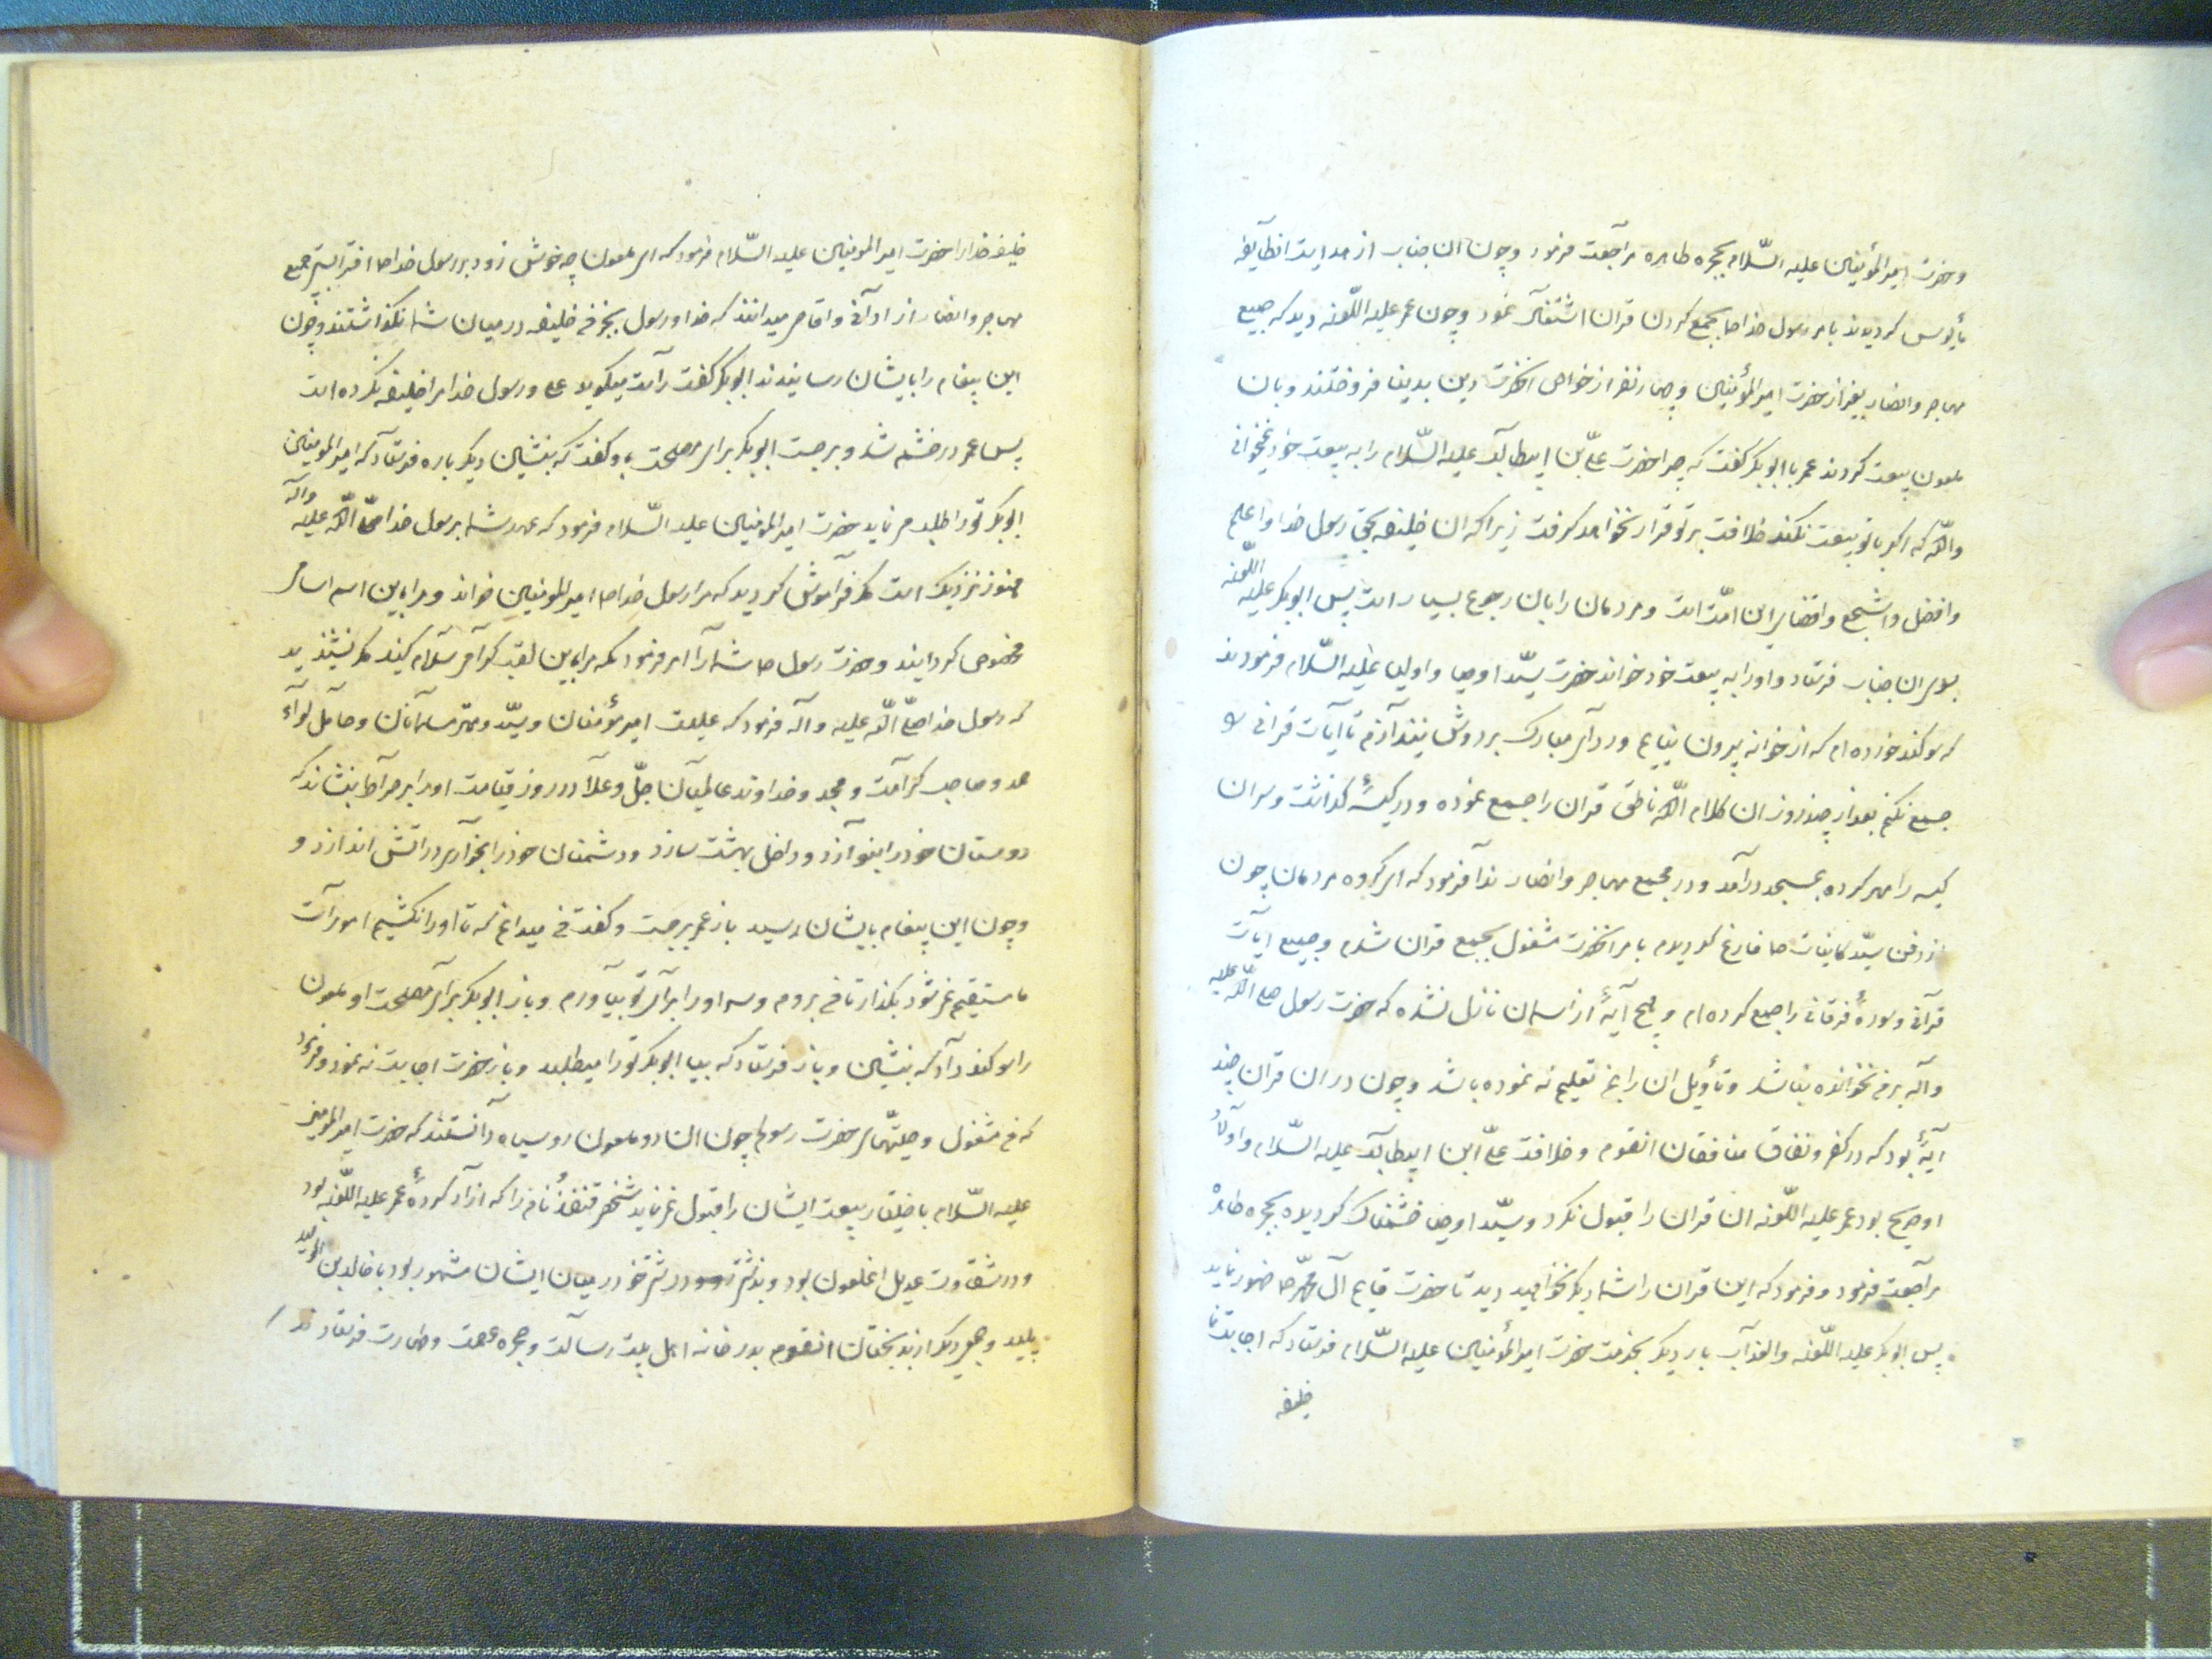 وحضرت امیر المؤمنین علیه السّلام بحجره طاهره مراجعت فرمود وچون انجناب از هدایت انطایفه
مأیوس کردیدند بامر رسول خدا ص بجمع کردن قران اشتغال نمود وچون عمر علیه اللّعنه دید که جمیع
مهاجر وانصار بغیر از حضرت امیر المؤمنین وچهار نفر از خواص انحضرت دین بدنیا فروختند وبان
ملعون بیعت کردند عمر با ابوبکر کفت که چرا حضرت علیّ بن ابیطالب علیه السّلام را به بیعت خود نمیخوانی
واللّه که اکر باتو بیعت نکند خلافت برتو قرار نخواهد کرفت زیرا که ان خلیفه بحق رسول خدا واعلم
وافضل واشجع واقضای این امّت است ومردمان را بان رجوع بسیار است پس ابوبکر علیه اللّعنه
بسوی ان جناب فرستاد واورا به بیعت خود خواند حضرت سیّد اوصیا واولیا علیه السّلام فرمودند
که سوکند خورده ام که از خوانه بیرون نیایم وردای مبارک بردوش نیندازم تا آیات قرانی را
جمع نکنم بعد از چند روز ان کلام اللّه ناطق قران را جمع نموده ودر کیسهٔ کذاشت وسر ان
کیسه را مهر کرده بمسجد درآمد ودر مجمع مهاجر وانصار ندا فرمود که ای کروه مردمان چون
از دفن سیّد کاینات ص فارغ کردیدم بامر انحضرت مشغول بجمع قران شدم وجمیع ایات
قرآنی وسورهٔ فرقانی را جمع کرده ام وهیچ آیهٔ از اسمان نازل نشده که حضرت رسول صلی اللّه علیه
وآله برمن نخوانده باشد وتأویل ان را بمن تعلیم نه نموده باشد وچون در ان قران چند
آیهٔ بود که در کفر ونفاق منافقان انقوم وخلافت علیّ ابن ابیطالب علیه السّلام واولاد
او صریح بود عمر علیه اللّعنه ان قران را قبول نکرد وسیّد اوصیا خشمناک کردیده بحجره طاهره
مراجعت فرمود وفرمود که این قران را شما دیکر نخواهید دید تا حضرت قایم آل محمّد ص ظهور نماید
پس ابوبکر علیه اللّعنه والعذاب بار دیکر بخدمت حضرت امیر المؤمنین علیه السّلام فرستاد که اجابت نما
خلیفه
خلیفه خدا را حضرت امیر المومنین علیه السّلام فرمود که ای ملعون چه خوش زود بر رسول خدا ص افترا بستی جمیع
مهاجر وانصار از ادانی واقاصی میدانند که خدا ورسول بجز من خلیفه در میان شما نکذاشتند وچون
این پیغام را بایشان رسانیدند ابوبکر کفت راست میکوید علی ورسول خدا مرا خلیفه نکرده است
پس عمر در خشم شد وبرجست ابوبکر برای مصلحت باو کفت که بنشین دیکر باره فرستاد که امیر المومنین
ابوبکر تورا طلب می نماید حضرت امیر المومنین علیه السّلام فرمود که عهد شما برسول خدا صلّی اللّه علیه وآله
هنوز نزدیک است مکر فراموش کردید که مرا رسول خدا ص امیر المومنین خواند ومرا باین اسم سامی
مخصوص کردانید وحضرت رسول ص شما را امر فرمود که مرا باین لقب کرامی سلام کنید مکر نشنیدید
که رسول خدا صلّی اللّه علیه وآله فرمود که علیست امیر مؤمنان وسیّد ومهتر مسلمانان وحامل لوآء
حمد وصاحب کرامت ومجد وخداوند عالمیان جلّ وعلا در روز قیامت اورا بر صراط بنشاند که
دوستان خود را بنوازد وداخل بهشت سازد ودشمنان خود را بخواری در اتش اندازد و
وچون این پیغام بایشان رسید باز عمر برجست وکفت من میدانم که تا اورا نکشیم امور آن
ما مستقیم نمی شود بکذار تا من بروم وسر اورا برای تو بیاورم وباز ابوبکر برای مصلحت او ملعون
را سوکند داد که بنشین وباز فرستاد که بیا ابوبکر تورا میطلبد وباز حضرت اجابت نه نمود وفرمود
که من مشغول وصیّتهای حضرت رسولم چون ان دو ملعون روسیاه دانستند که حضرت امیر المومنین
علیه السّلام باختیار بیعت ایشان را قبول نمی نماید شخص قنفذ نام را که ازاد کردهٔ عمر علیه اللّعنه بود
ودر شقاوت عدیل انملعون بود در میان ایشان مشهور بود با خالد بن الولید
پلید وجمعی دیکر از بدبختان انقوم بدر خانه اهل بیت رسالت وحجره عصمت وطهارت فرستادند